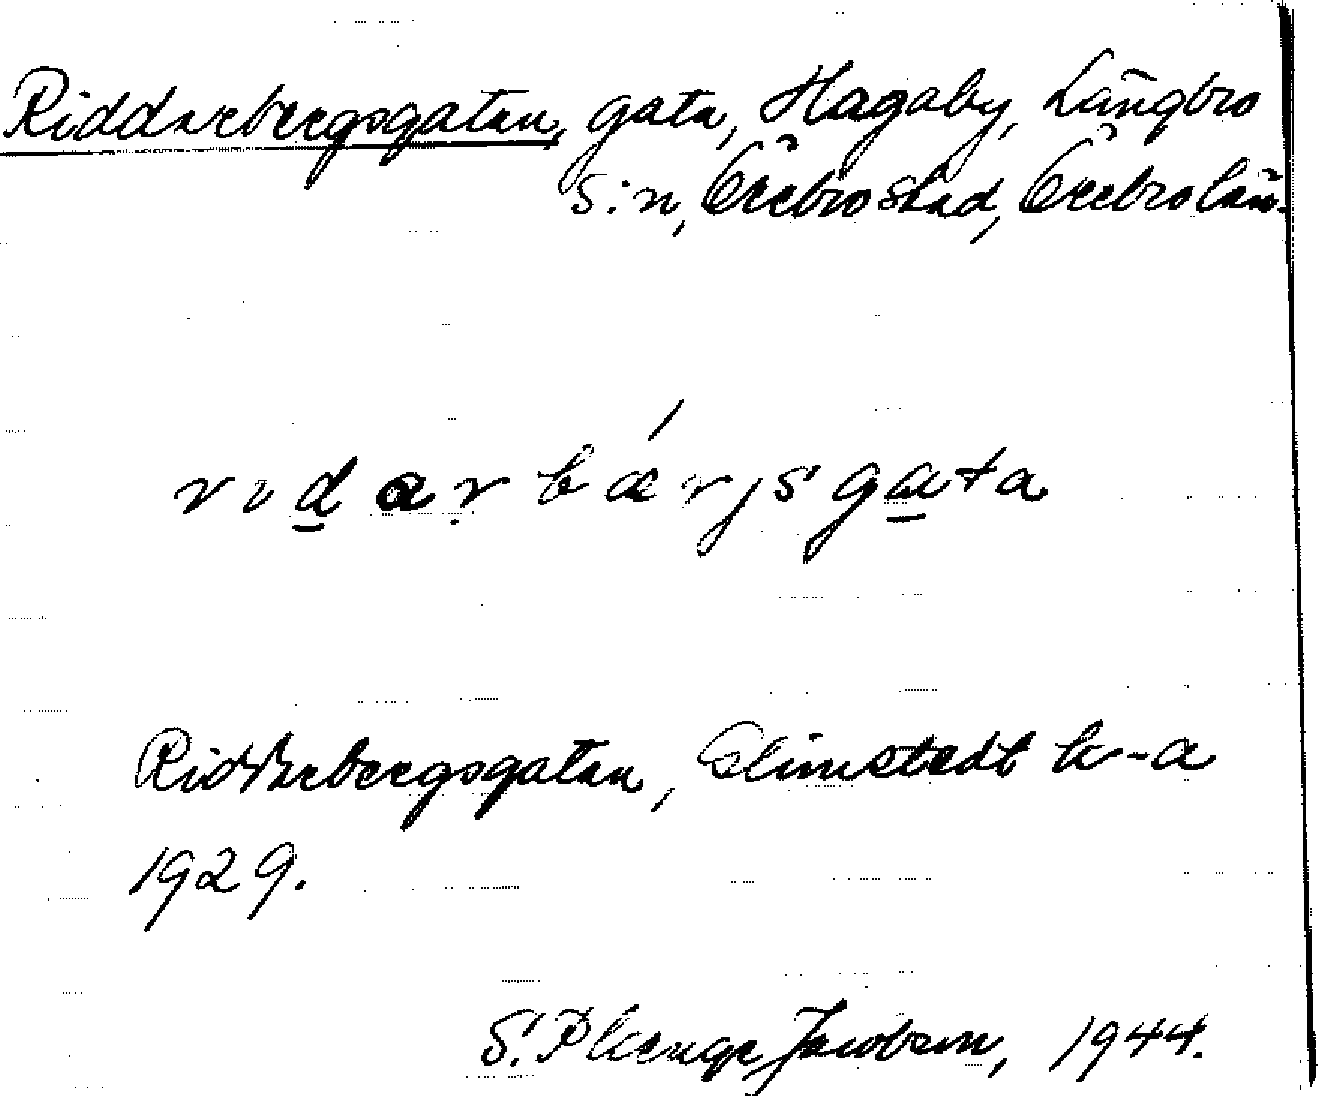 Riddarebergsgatan, gata, Hagaby, Längbro
s:n, Örebro stad, Örebro län.
rıdarbærjsgata
Riddarebergsgatan, Elmstedt k-a
1929.
S. Plænge Jacobson, 1944.